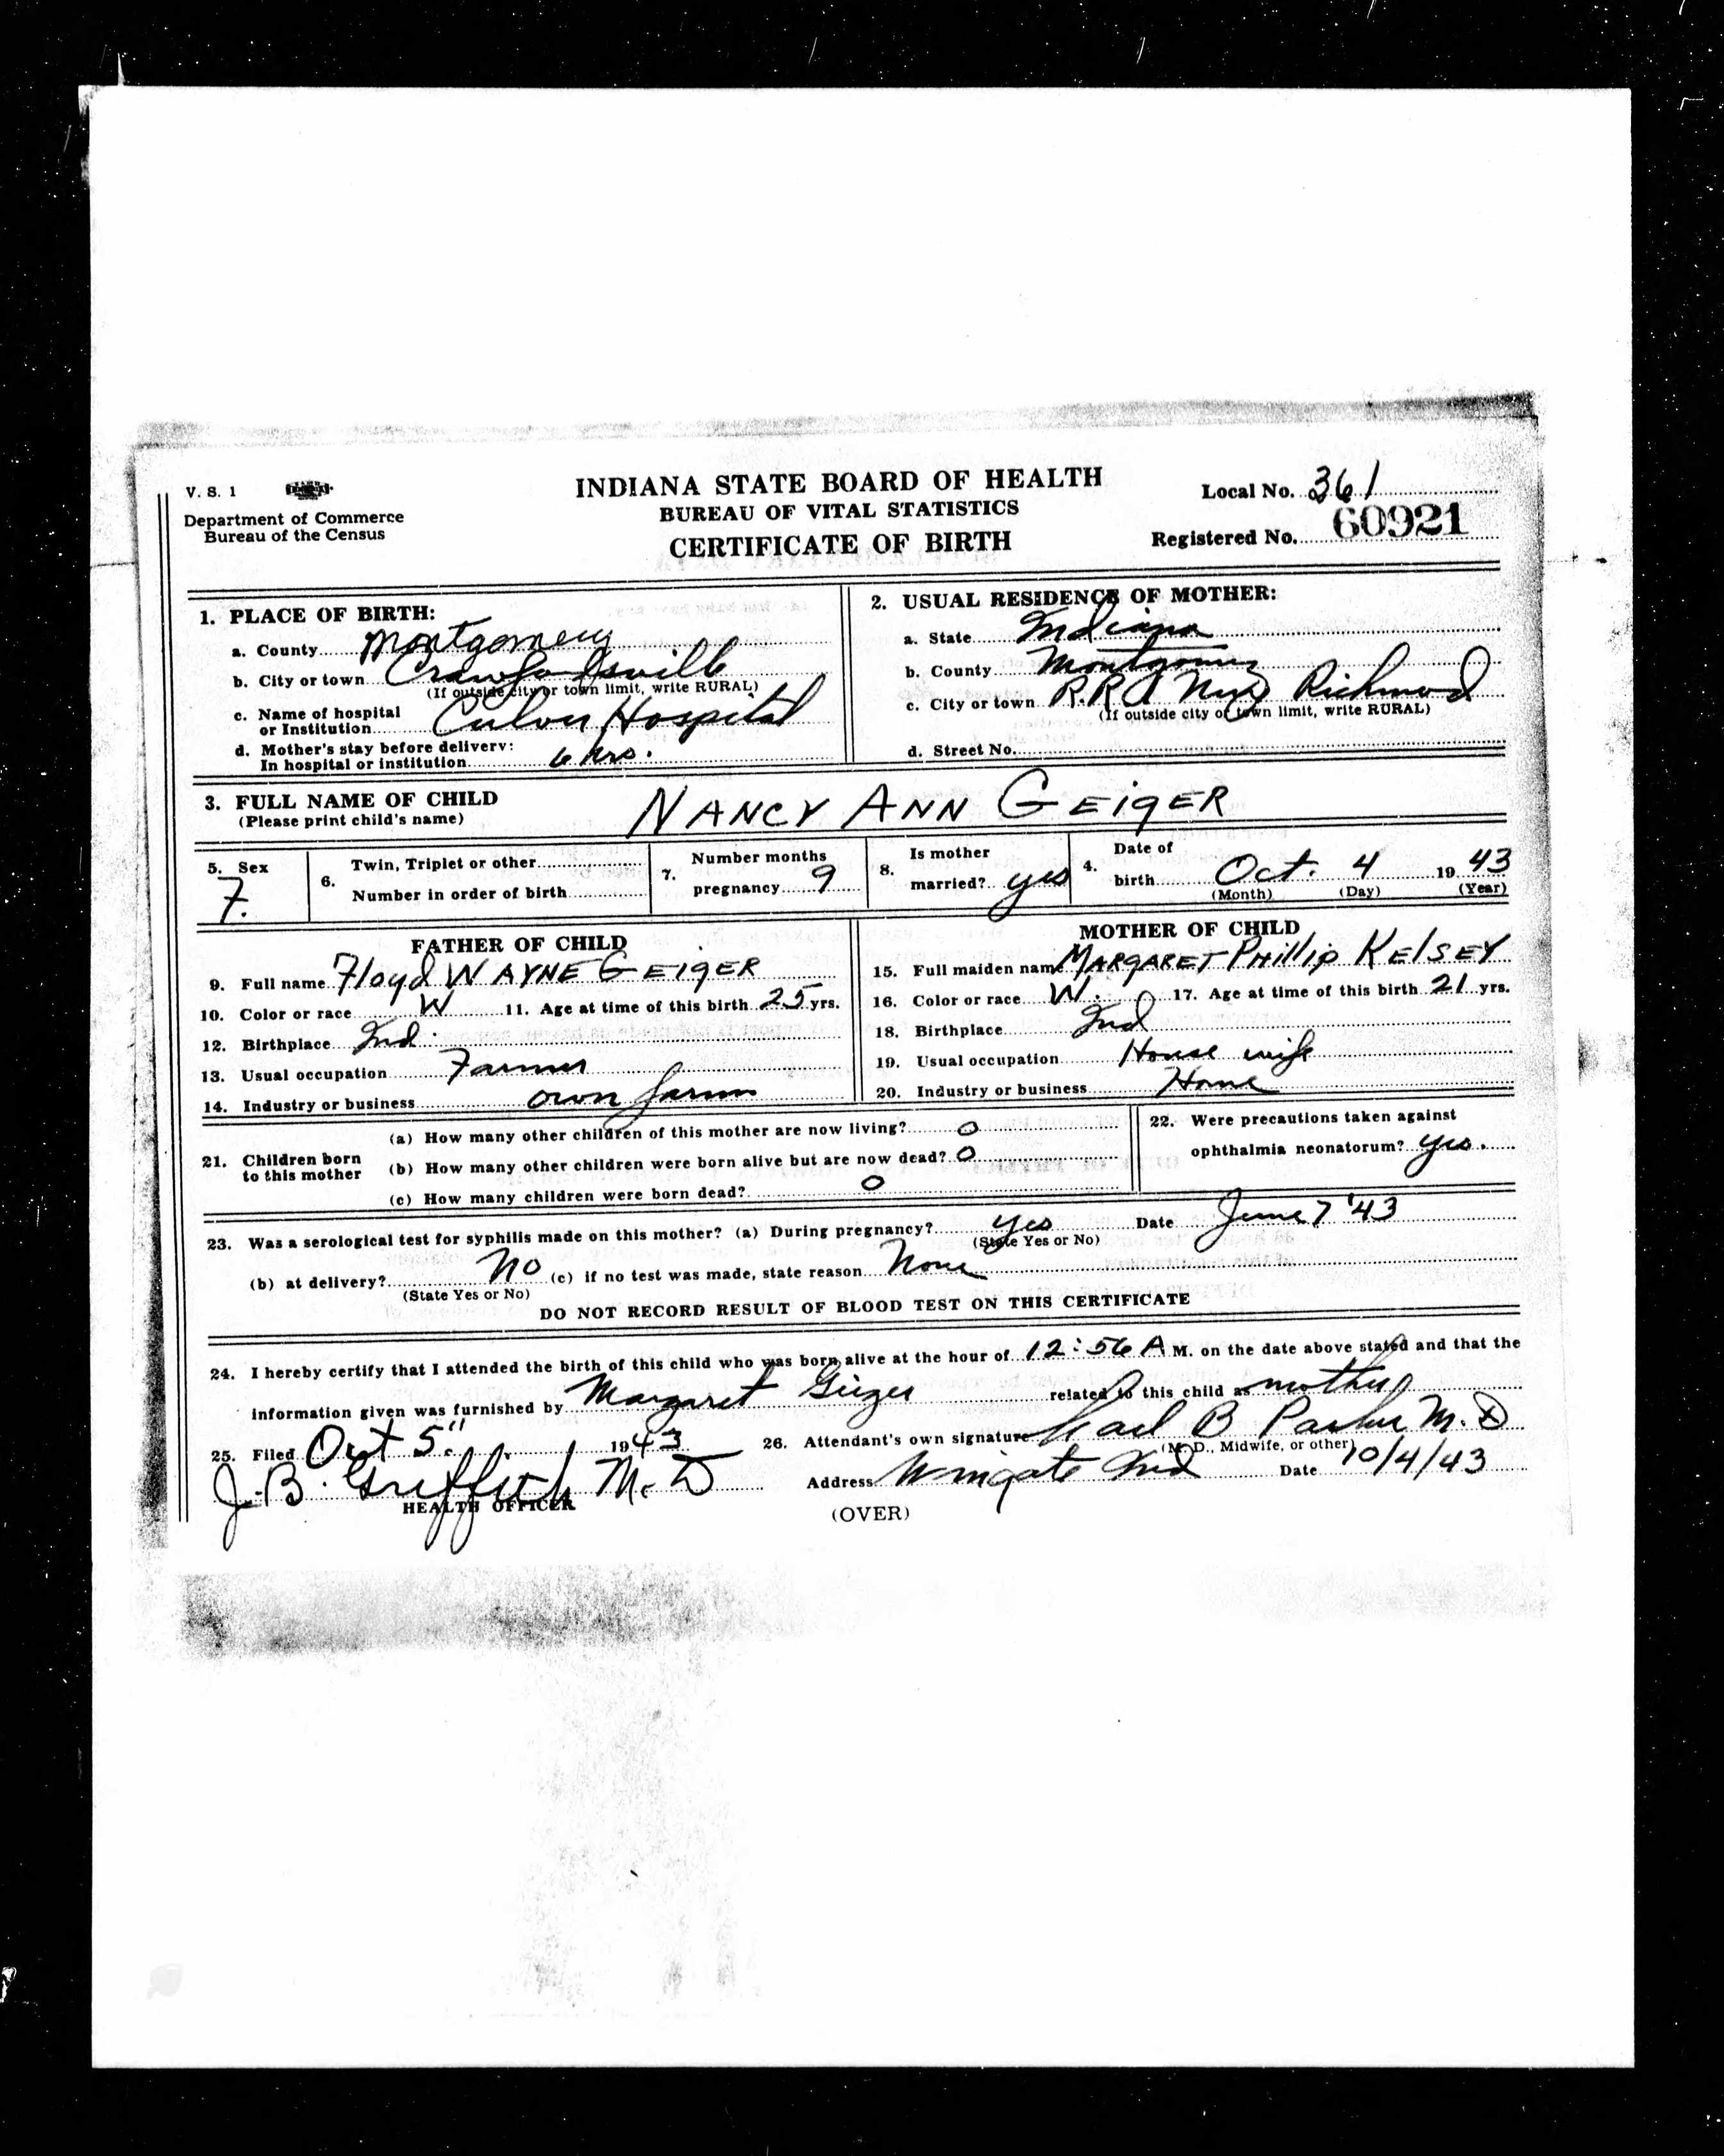 V. S. 1
Department of Commerce
Bureau of the Census
INDIANA STATE BOARD OF HEALTH
BUREAU OF VITAL STATISTICS
CERTIFICATE OF BIRTH
Local No. 361
Registered No. 60921
1. PLACE OF BIRTH:
a. County Montgomery
b. City or town Crawfordsville
(If outside city or town limit, write RURAL)
c. Name of hospital
or Institution Culver Hospital
d. Mother's stay before delivery:
In hospital or institution 6 hrs.
2. USUAL RESIDENCE OF MOTHER:
a. State Indiana
b. County Montgomery
c. City or town R.R. New Richmond
(If outside city or town limit, write RURAL)
d. Street No.
3. FULL NAME OF CHILD NANCY ANN GEIGER
(Please print child's name)
5. Sex
F.
6. Twin, Triplet or other
Number in order of birth
7. Number months
pregnancy 9
8. Is mother
married? yes
4. Date of
birth Oct. 4 19 43
(Month) (Day) (Year)
FATHER OF CHILD
9. Full name Floyd WAYNE GEIGER
10. Color or race W 11. Age at time of this birth 25 yrs.
12. Birthplace Ind.
13. Usual occupation Farmer
14. Industry or business own farm
MOTHER OF CHILD
15. Full maiden name MARGARET PHillip KElSEY
16. Color or race W. 17. Age at time of this birth 21 yrs.
18. Birthplace Ind
19. Usual occupation House wife
20. Industry or business Home
21. Children born
to this mother
(a) How many other children of this mother are now living? 0
(b) How many other children were born alive but are now dead? 0
(c) How many children were born dead? 0
22. Were precautions taken against
ophthalmia neonatorum? yes.
23. Was a serological test for syphilis made on this mother? (a) During pregnancy? yes Date June 7 '43
(State Yes or No)
(b) at delivery? No (c) if no test was made, state reason None
(State Yes or No)
DO NOT RECORD RESULT OF BLOOD TEST ON THIS CERTIFICATE
24. I hereby certify that I attended the birth of this child who was born alive at the hour of 12:56 A M. on the date above stated and that the
information given was furnished by Margaret Geiger related to this child as mother
25. Filed Oct 5" 1943
J. B. Griffith M. D
HEALTH OFFICER
26. Attendant's own signature B Parker M. D
(M. D., Midwife, or other)
Address Wingate Ind Date 10/4/43
(OVER)